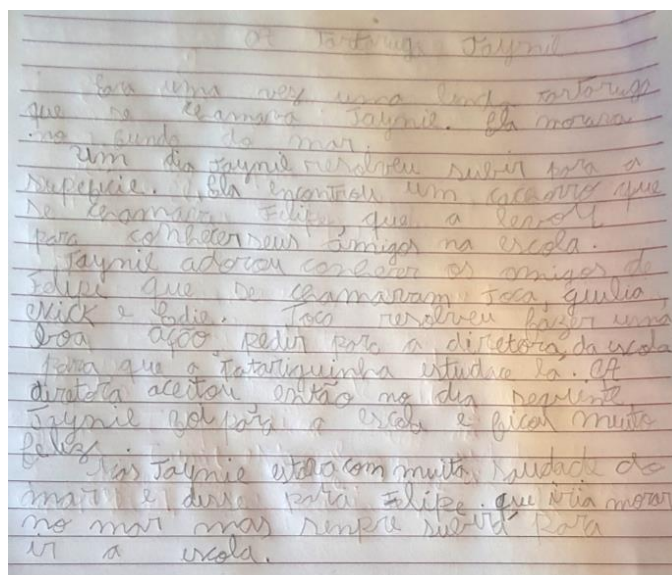 A Tartaruga Jaynie
Era uma vez uma linda tartaruga
que se chamava Jaynie. Ela morava
no fundo do mar.
Um dia Jaynie resolveu subir para a
supefície. Ela encontrou um que
se chamava Felipe, que a levou
para conhecer seus amigos na escola.
Jaynie adorou conhecer os amigos de
Felipe que se chamavam Joca, giulia
e
Joca resolveu fazer uma
boa ação pedir para a diretora, da escola
para que a estudace la. A
diretora aceitou então no dia seguinte
Jaynie para a escola e ficou muito
feliz.
Mas Jaynie estava com muita saudade do
mar e disse para Felipe que iria morar
no mar mas sempre para
ir a escola.